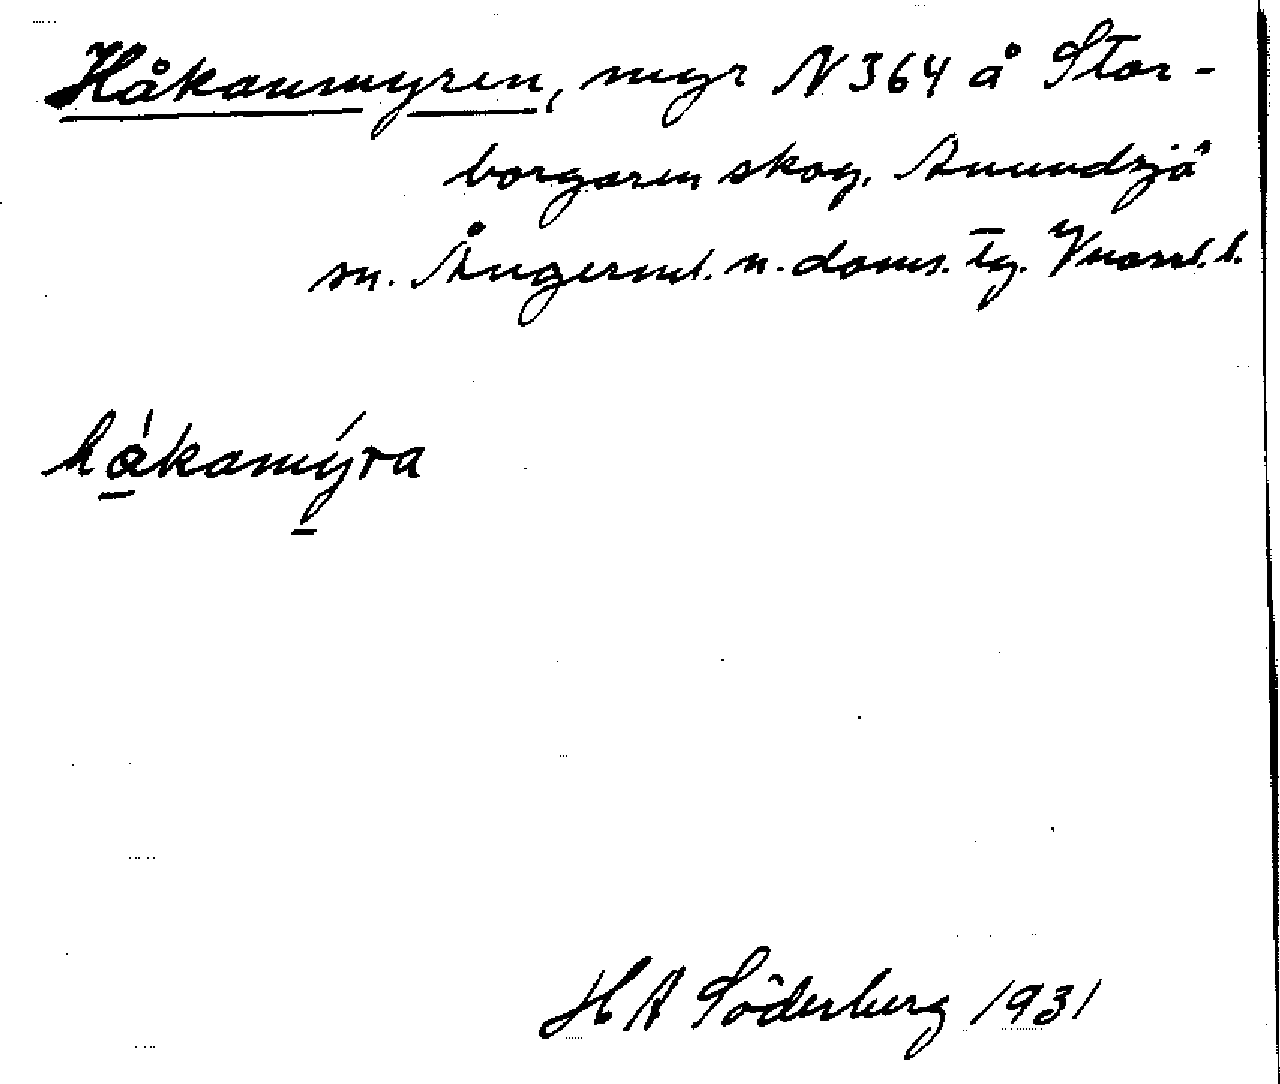 Håkanmyren, myr N 364 å Stor-
borgaren skog, Anundsjö
sn. Ångerml. n. doms. tg. Vnorrl. l.
håkamýra
H A Söderberg 1931